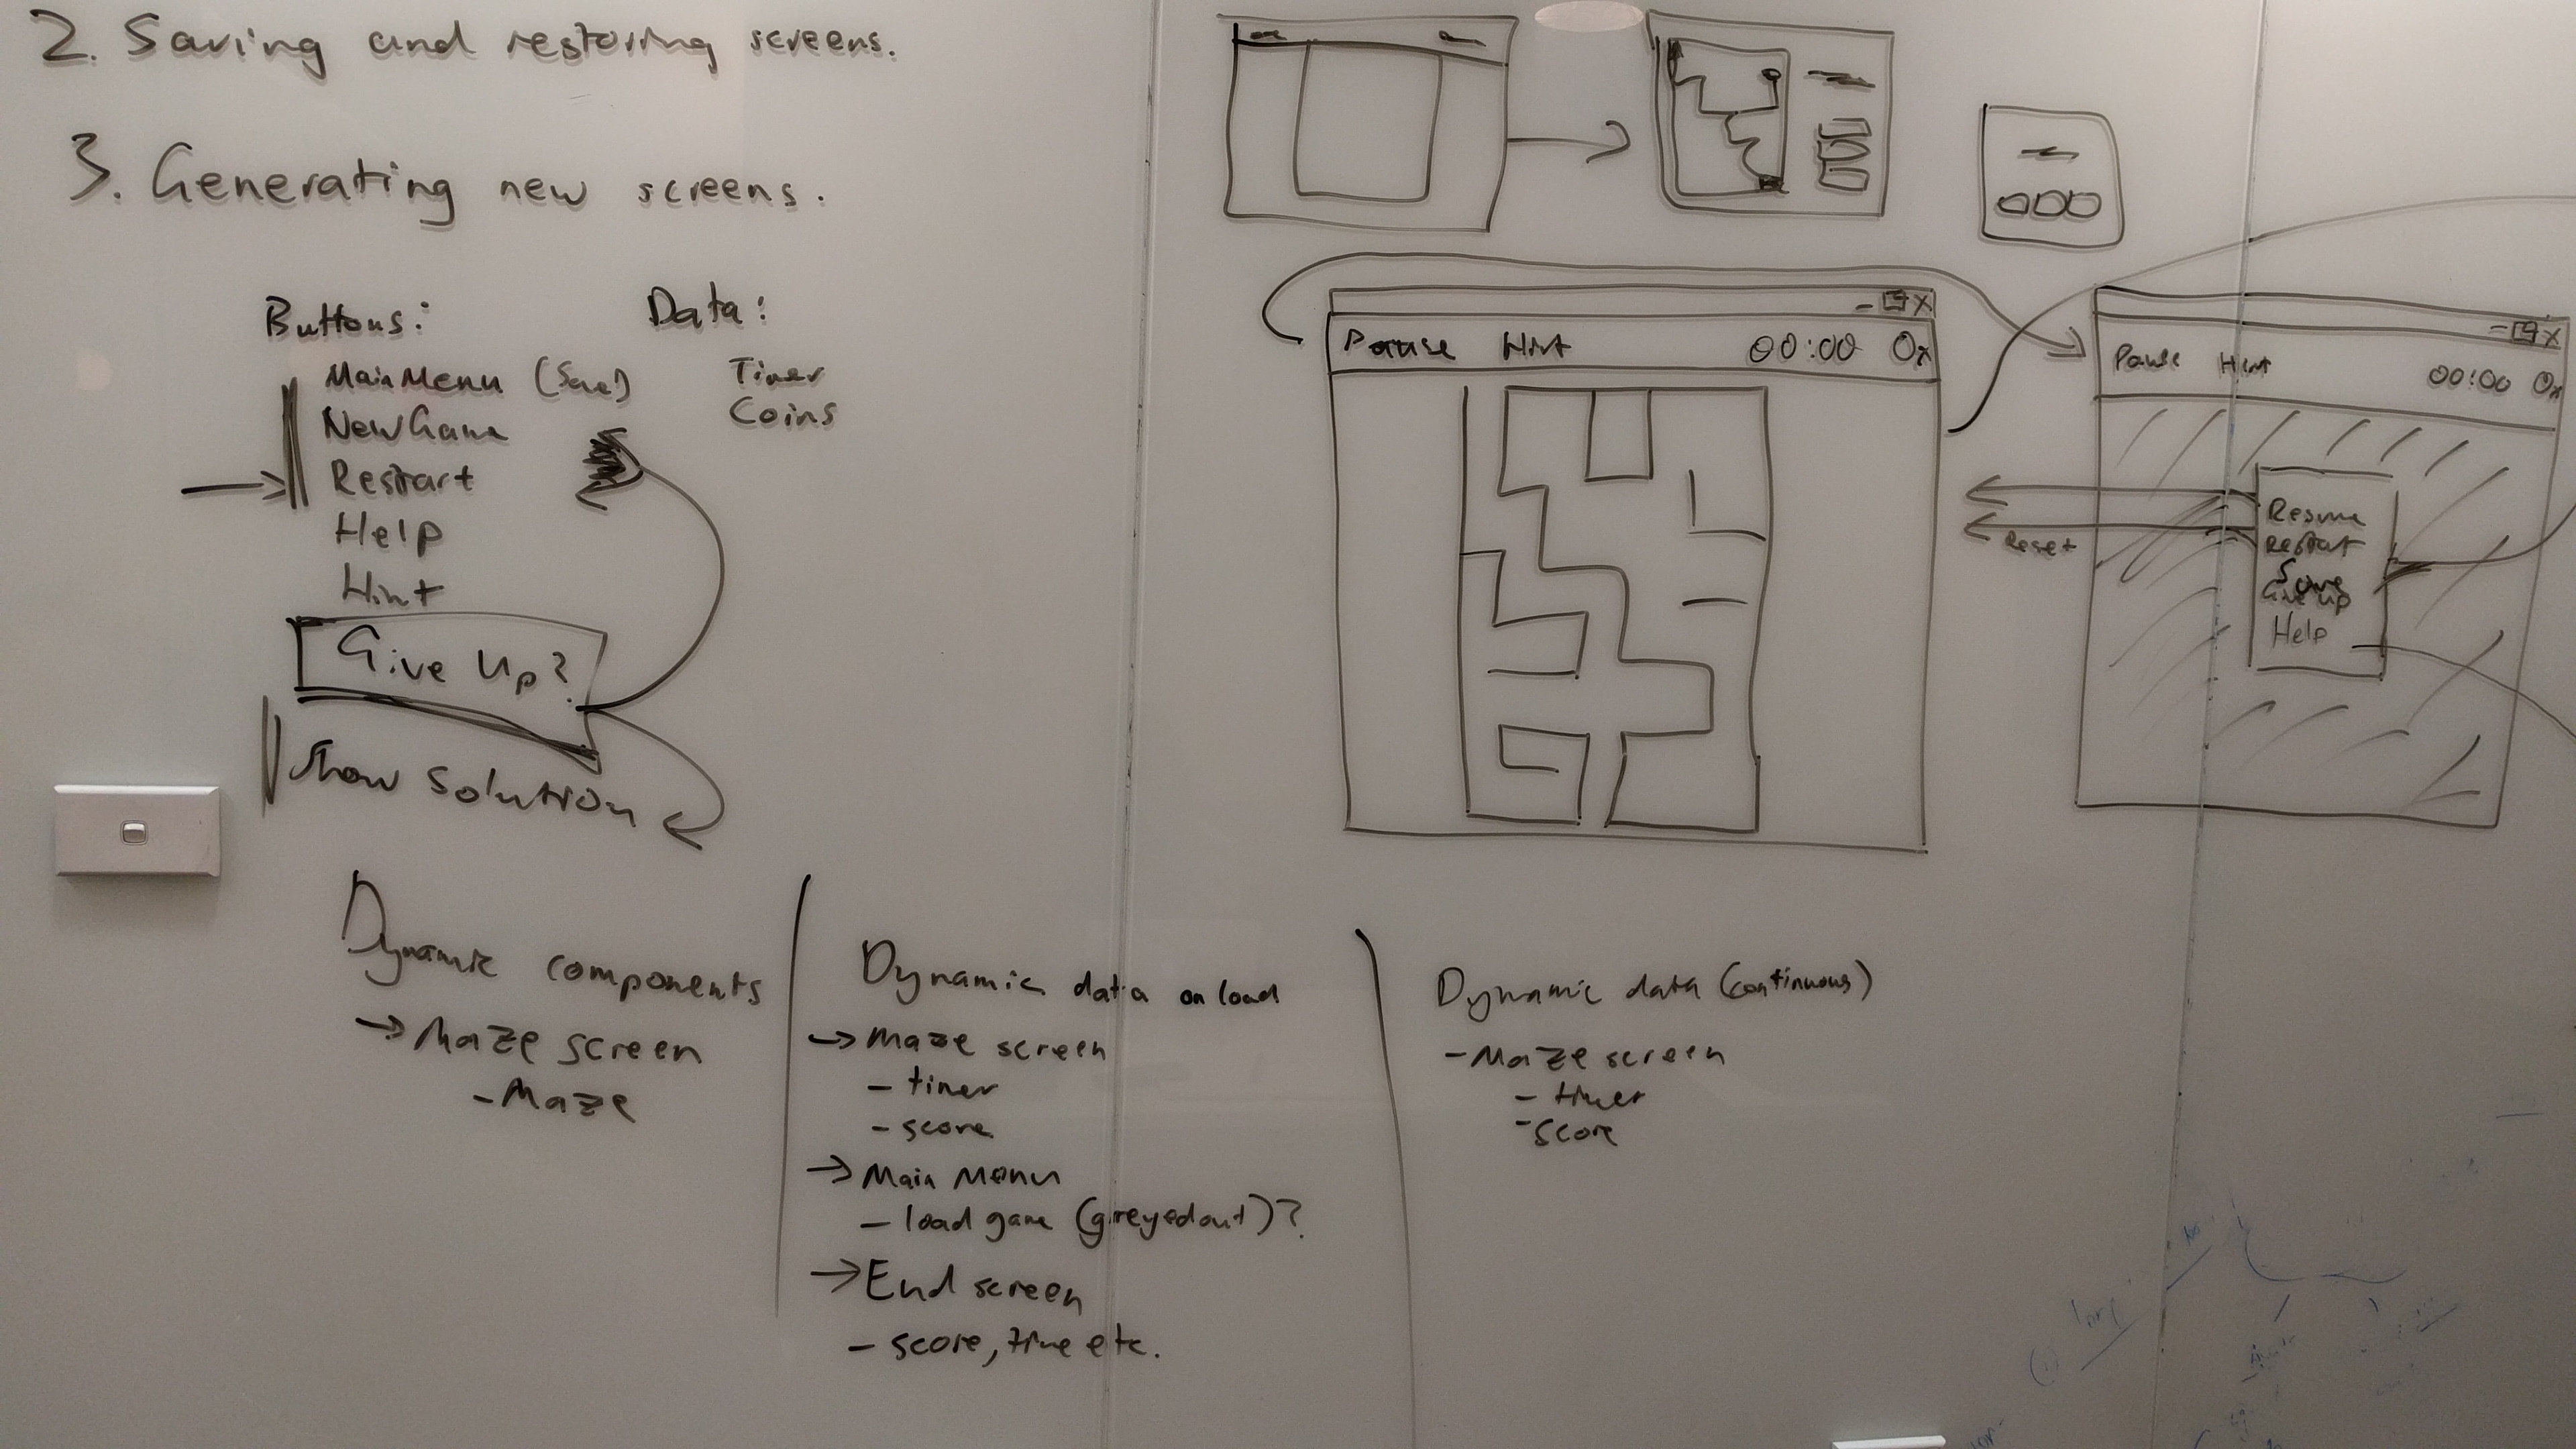 2. Saving and restoring screens.
3. Generating new screens.
Buttons:
Main Menu (Save)
New Game
Restart
Help
Hint
Give Up?
Show solution
Data:
Timer
Coins
Pause Hint 00:00 0x
- X
Pause Hint 00:00 0x
- X
Reset
Resume
Restart
Save
Give up
Help
Dynamic components
→ Maze screen
- Maze
Dynamic data on load
→ Maze screen
- timer
- score
→ Main Menu
- load game (greyed out)?
→ End screen
- score, time etc.
Dynamic data (continuous)
- Maze screen
- timer
- score